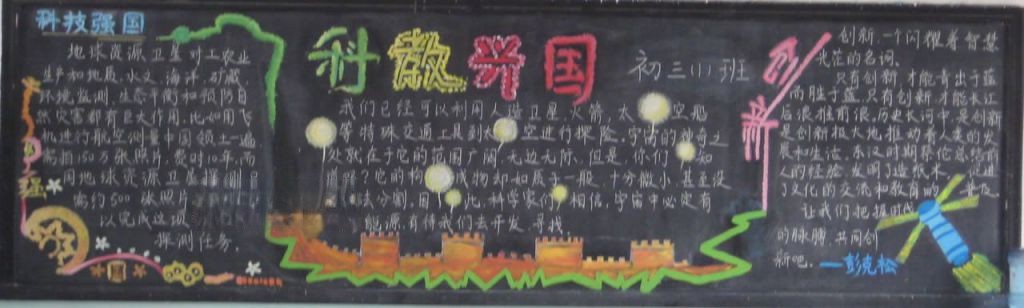 科技强国
地球资源卫星对工农业
生产和地质、水文、海洋、矿藏、
环境监测、生态平衡和预防自
然灾害都有巨大作用,比如用飞
机进行航空测量中国领土一遍
需拍150万张照片,费时10年,而
用地球资源卫星探测只
需约500张照片
以完成这项
探测任务。
科教兴国
初三(1)班
我们已经可以利用人造卫星、火箭、太空船
等特殊交通工具到太空进行探险,宇宙的神奇之
处就在于它的范围广阔、无边无际、但是,你们知
道吗?它的构成物却如质子一般,十分微小,甚至没
法分割,因此,科学家们相信,宇宙中必定有
能源,有待我们去开发、寻找。
创新
创新,一个闪耀着智慧
光茫的名词。
只有创新,才能青出于蓝
而胜于蓝,只有创新,才能长江
后浪推前浪,历史长河中,是创新
是创新极大地推动着人类的发
展和生活。东汉时期蔡伦总结前
人的经验,发明了造纸术,促进
了文化的交流和教育的普及
让我们把握时代
的脉膊,共同创
新吧。——彭克松